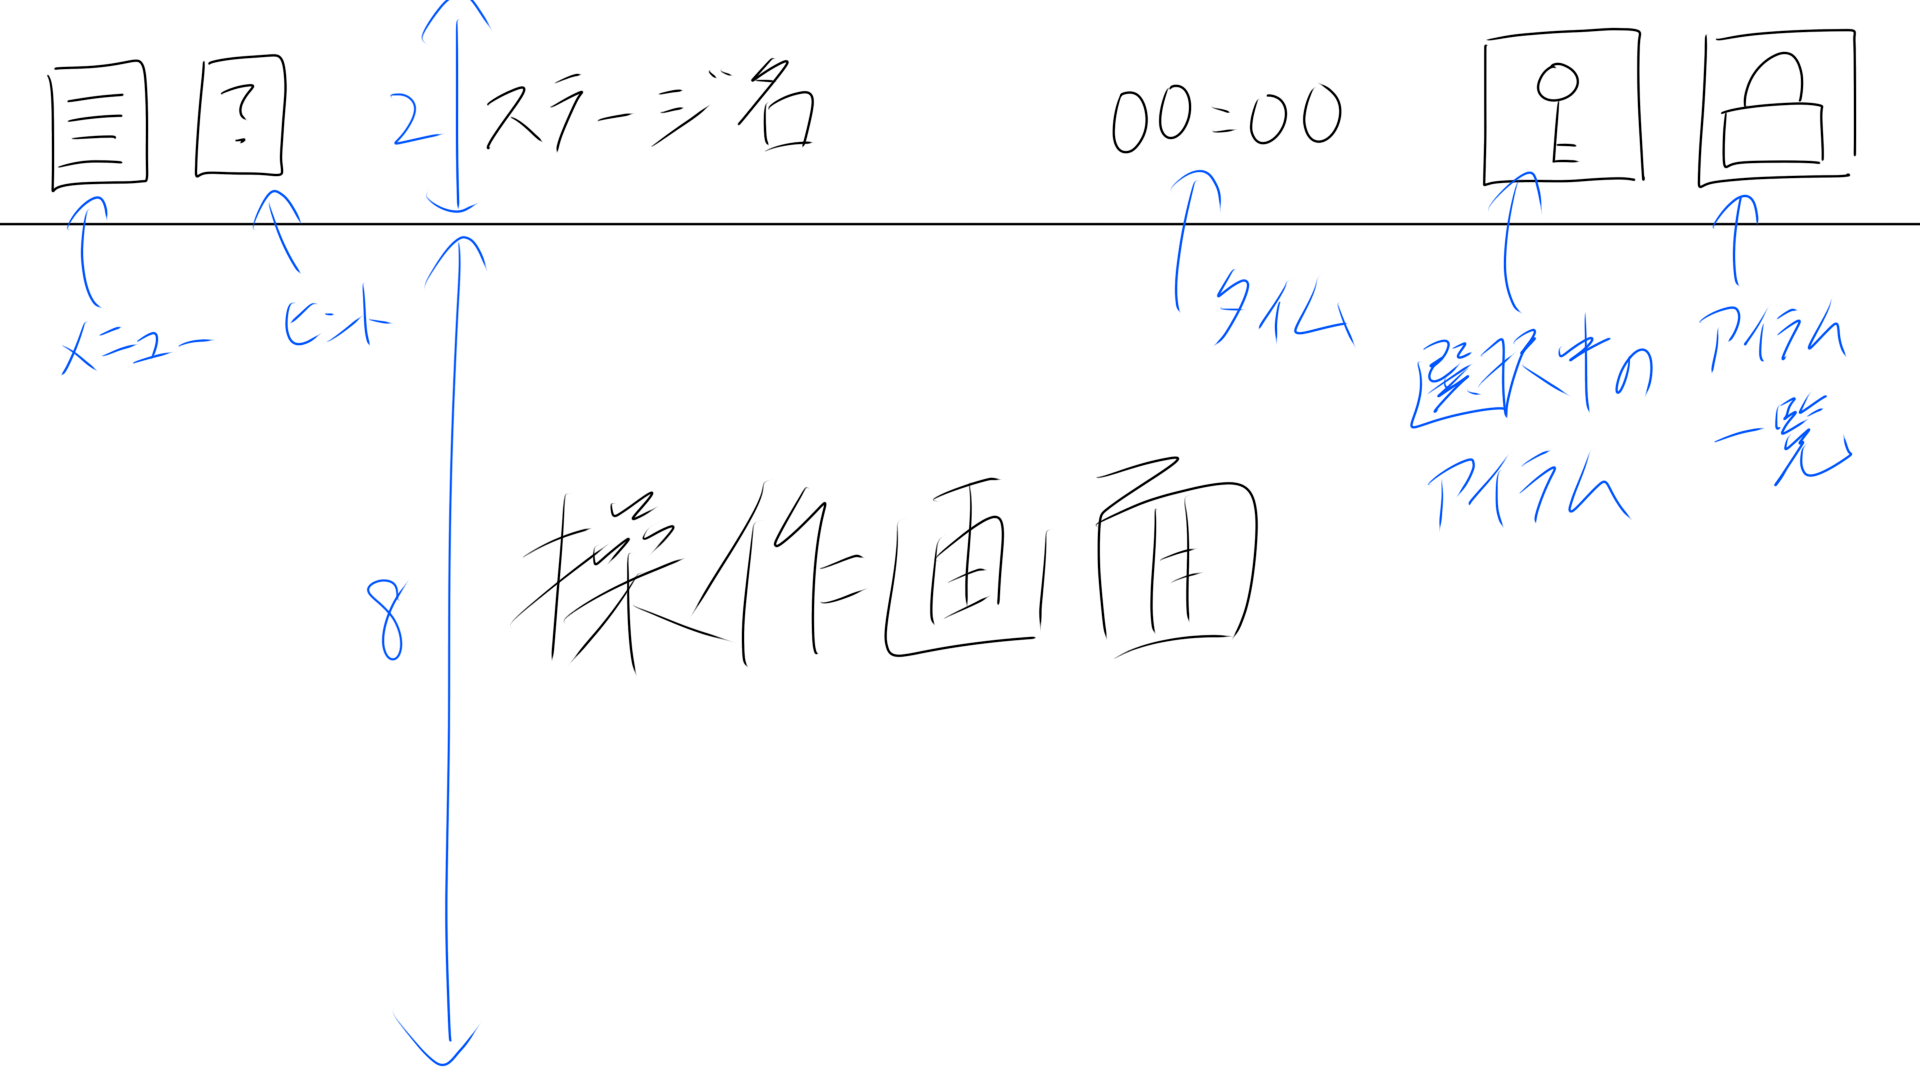 ?
2
ステージ名
00:00
メニュー
ヒント
タイム
選択中の
アイテム
アイテム
一覧
操作画面
8